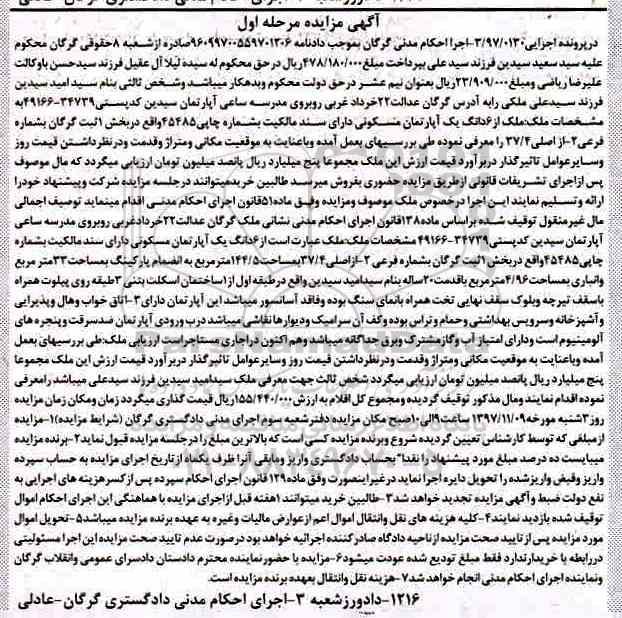 آگهی مزایده مرحله اول
درپرونده اجرایی۳/۹۷/۰۱۳۰-اجرا احکام مدنی گرگان بموجب دادنامه ۹۶۰۹۹۷۰۰۵۵۹۷۰۱۳۰۶صادره ازشعبه ۸حقوقی گرگان محکوم
علیه سید سعید سیدین فرزند سید علی بپرداخت مبلغ۴۷۸/۱۸۰/۰۰۰ریال در حق محکوم له سیده لیلا آل عقیل فرزند سیدحسن باوکالت
علیرضا ریاضی ومبلغ۲۳/۹۰۹/۰۰۰ریال بعنوان نیم عشر در حق دولت محکوم وبدهکار میباشد وشخص ثالثی بنام سید امید سیدین
فرزند سیدعلی ملکی رابه آدرس گرگان عدالت۲۲خرداد غربی روبروی مدرسه ساعی آپارتمان سیدین کدپستی۳۴۷۳۹-۴۹۱۶۶به
مشخصات ملک:ملک از۶دانگ یک آپارتمان مسکونی دارای سند مالکیت بشماره چاپی۴۵۴۸۵واقع دربخش ۱ثبت گرگان بشماره
فرعی۲-از اصلی۳۷/۴ را معرفی نموده طی بررسیهای بعمل آمده وباعنایت به موقعیت مکانی ومتراژ وقدمت ودرنظرداشتن قیمت روز
وسایرعوامل تاثیرگذار دربرآورد قیمت ارزش این ملک مجموعا پنج میلیارد ریال پانصد میلیون تومان ارزیابی میگردد که مال موصوف
پس ازاجرای تشریفات قانونی ازطریق مزایده حضوری بفروش میرسد طالبین خریدمیتوانند درجلسه مزایده شرکت وپیشنهاد خودرا
ارائه وتسلیم نمایند این اجرا درخصوص ملک موصوف ومزایده وفق ماده۵۱قانون اجرای احکام مدنی اقدام مینماید توصیف اجمالی
مال غیرمنقول توقیف شده براساس ماده۱۳۸قانون اجرای احکام مدنی نشانی ملک گرگان عدالت۲۲خردادغربی روبروی مدرسه ساعی
آپارتمان سیدین کدپستی۳۴۷۳۹-۴۹۱۶۶ مشخصات ملک:ملک عبارت است از۶دانگ یک آپارتمان مسکونی دارای سند مالکیت بشماره
چاپی۴۵۴۸۵واقع دربخش ۱ثبت گرگان بشماره فرعی ۲-ازاصلی۳۷/۴بمساحت۱۴۴/۵مترمربع به انضمام پارکینگ بمساحت۳۳متر مربع
وانباری بمساحت۴/۹۶مترمربع باقدمت۲۰ساله بنام سیدامید سیدین واقع درطبقه اول از۱ساختمان اسکلت بتنی ۳طبقه روی پیلوت همراه
باسقف تیرچه وبلوک سقف نهایی تخت همراه بانمای سنگ بوده وفاقد آسانسور میباشد این آپارتمان دارای۳-اتاق خواب وهال وپذیرایی
وآشپزخانه وسرویس بهداشتی وحمام وتراس بوده وکف آن سرامیک ودیوارها نقاشی میباشد درب ورودی آپارتمان ضدسرقت وپنجره های
آلومینیوم است ودارای امتیاز آب وگازمشترک وبرق جداگانه میباشد وهم اکنون دراجاری مستاجراست ارزیابی ملک:طی بررسیهای بعمل
آمده وباعنایت به موقعیت مکانی ومتراژ وقدمت ودرنظرداشتن قیمت روز وسایرعوامل تاثیرگذار دربرآورد قیمت ارزش این ملک مجموعا
پنج میلیارد ریال پانصد میلیون تومان ارزیابی میگردد شخص ثالث جهت معرفی ملک سیدامید سیدین فرزند سیدعلی میباشد رامعرفی
نموده اقدام نمایند ومال مذکور توقیف گردیده ومجموع کل اقلام به ارزش ۱۵۵/۴۴۰/۰۰۰ریال قیمت گذاری میگردد زمان ومکان زمان مزایده
روز۳شنبه مورخه۱۳۹۷/۱۱/۰۹ ساعت۹الی۱۰صبح مکان مزایده دفترشعبه سوم اجرای مدنی دادگستری گرگان (شرایط مزایده)۱-مزایده
ازمبلغی که توسط کارشناس تعیین گردیده شروع وبرنده مزایده کسی است که بالاترین مبلغ را درجلسه مزایده قبول نماید۲-برنده مزایده
میبایست ده درصد مبلغ مورد پیشنهاد را نقدا" بحساب دادگستری واریز ومابقی آنرا ظرف یکماه از تاریخ اجرای مزایده به حساب سپرده
واریز وفیش واریزشده را تحویل دایره اجرا نماید درغیراینصورت وفق ماده۱۲۹قانون اجرای احکام سپرده پس از کسرهزینه های اجرایی به
نفع دولت ضبط وآگهی مزایده تجدید خواهد شد۳-طالبین خرید میتوانند ۱هفته قبل ازاجرای مزایده با هماهنگی این اجرای احکام اموال
توقیف شده بازدید نمایند۴-کلیه هزینه های نقل وانتقال اموال اعم ازعوارض مالیات وغیره به عهده برنده مزایده میباشد۵-تحویل اموال
مورد مزایده پس از تایید صحت مزایده ازناحیه دادگاه صادرکننده اجرائیه خواهد بود درصورت عدم تایید صحت مزایده این اجرا مسئولیتی
دررابطه با خریدارندارد فقط مبلغ تودیع شده عودت میشود۶-مزایده با حضورنماینده محترم دادستان دادسرای عمومی وانقلاب گرگان
ونماینده اجرای احکام مدنی انجام خواهد شد۷-هزینه نقل وانتقال بعهده برنده مزایده است.
۱۲۱۶-دادورزشعبه ۳-اجرای احکام مدنی دادگستری گرگان-عادلی